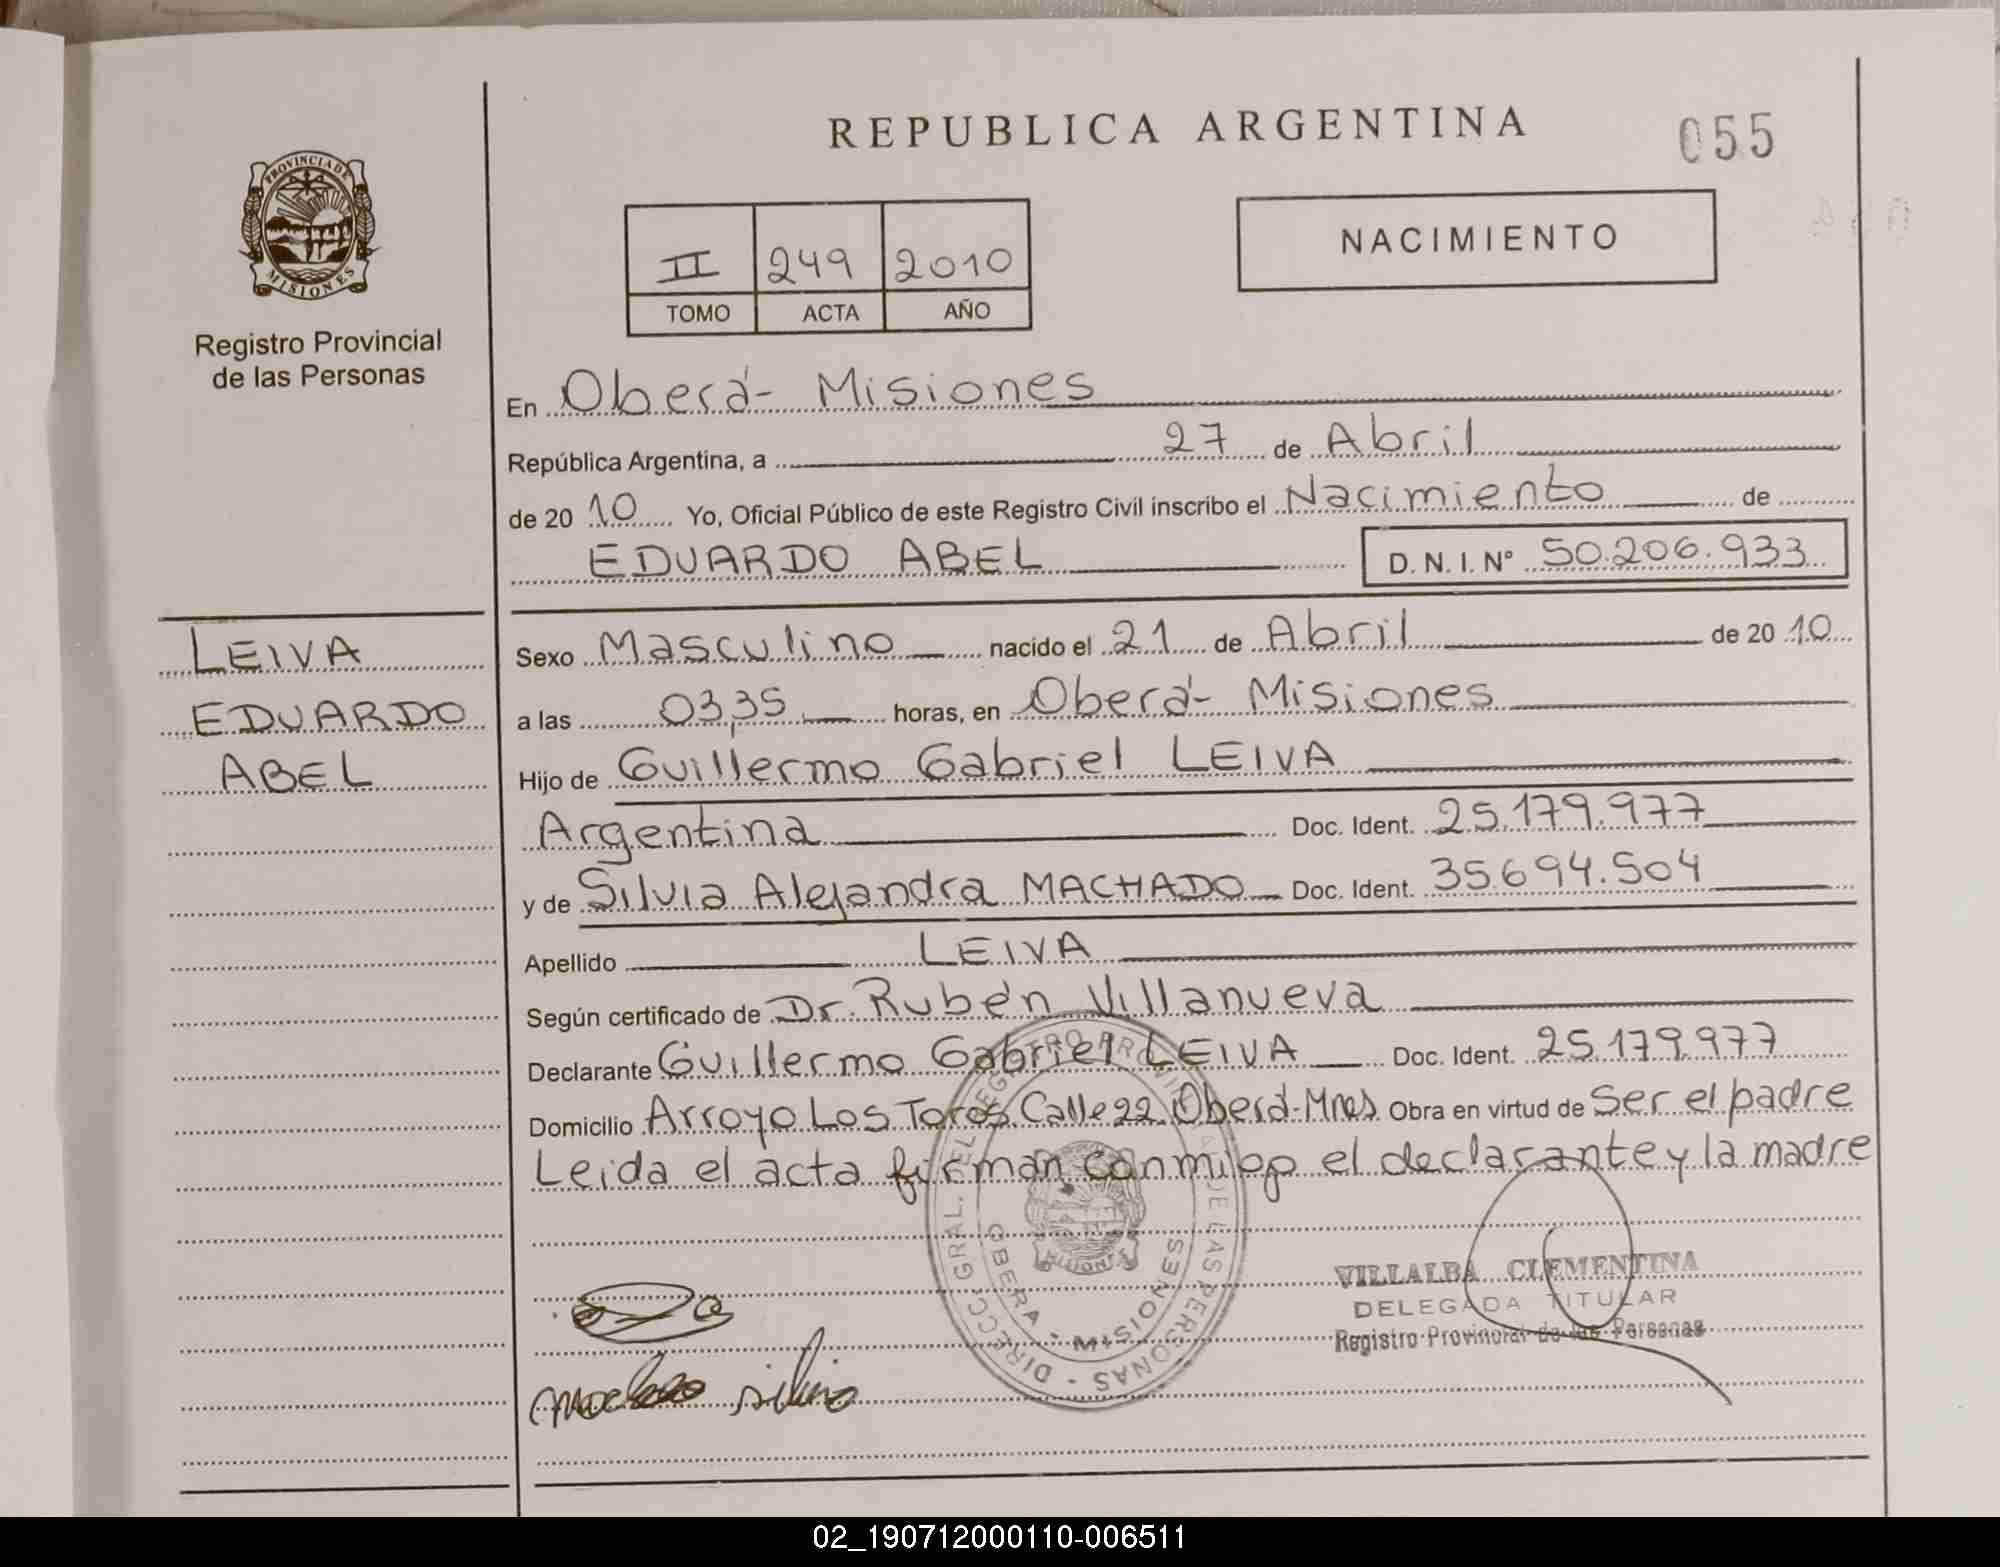 REPUBLICA ARGENTINA
055
PROVINCIA DE
MISIONES
Registro Provincial
de las Personas
II 249 2010
TOMO ACTA AÑO
NACIMIENTO
En Oberá- Misiones
República Argentina, a 27 de Abril
de 20 10 Yo, Oficial Público de este Registro Civil inscribo el Nacimiento de
EDUARDO ABEL D.N.I. Nº 50.206.933
LEIVA
EDUARDO
ABEL
Sexo Masculino nacido el 21 de Abril de 20 10
a las 03,35 horas, en Oberá- Misiones
Hijo de Guillermo Gabriel LEIVA
Argentina Doc. Ident. 25.179.977
y de Silvia Alejandra MACHADO Doc. Ident. 35.694.504
Apellido LEIVA
Según certificado de Dr. Rubén Villanueva
Declarante Guillermo Gabriel LEIVA Doc. Ident. 25.179.977
Domicilio Arroyo Los Toros Calle 22 Oberá-Mnes Obra en virtud de Ser el padre
Leida el acta firman conmigo el declarante y la madre
DIRECC. GRAL. DEL REGISTRO PROVINCIAL DE LAS PERSONAS
OBERA - MISIONES
MISIONES
VILLALBA CLEMENTINA
DELEGADA TITULAR
Registro Provincial de las Personas
silvia
02_190712000110-006511